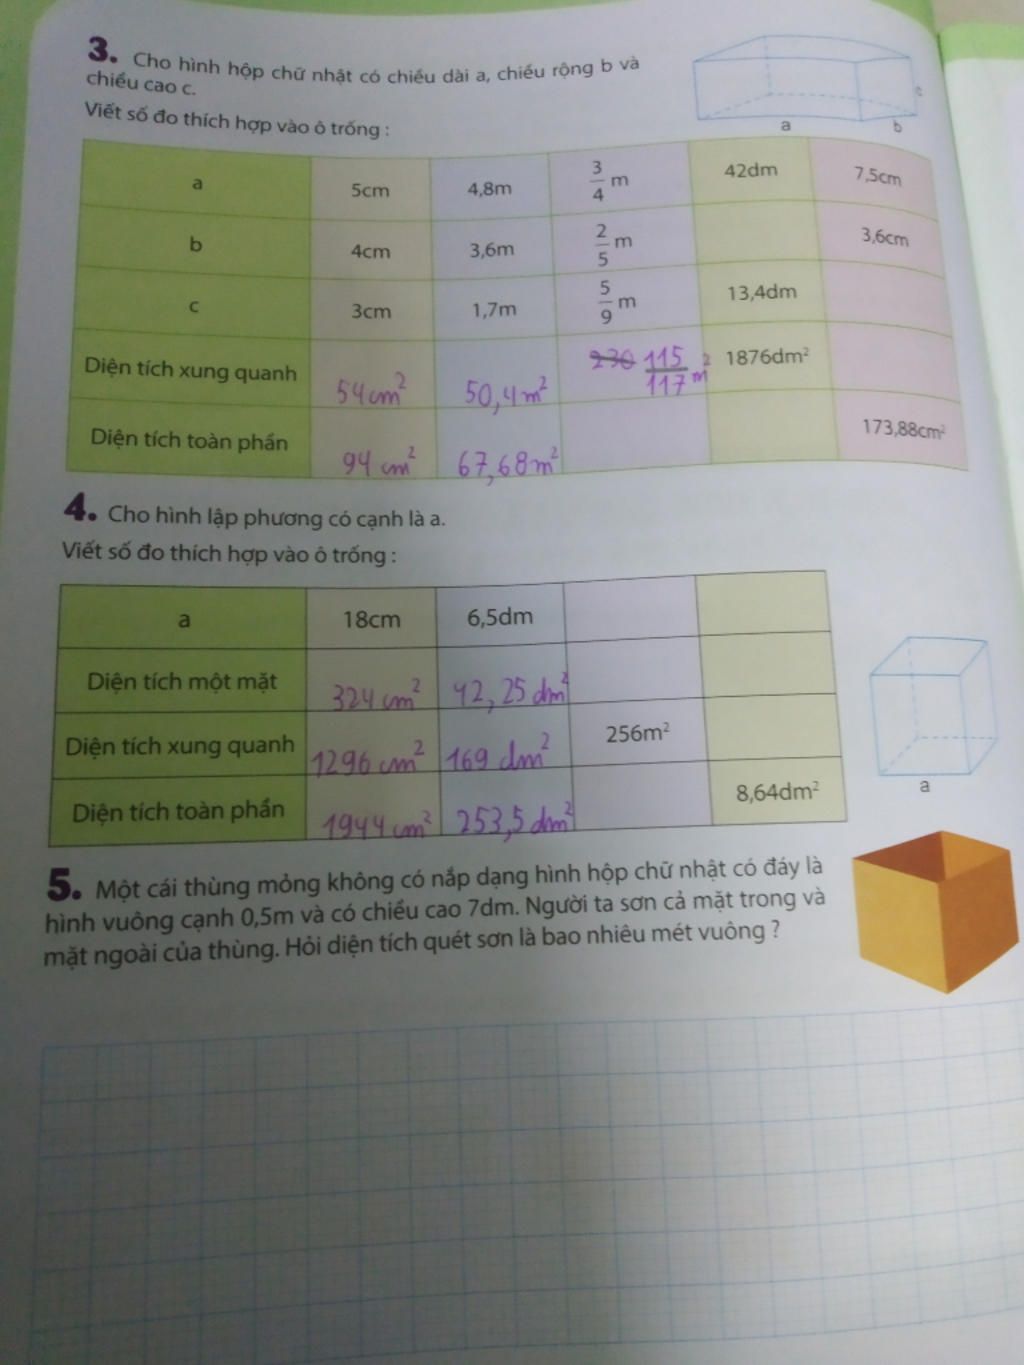 3. Cho hình hộp chữ nhật có chiều dài a, chiều rộng b và
chiều cao c.
Viết số đo thích hợp vào ô trống :
c
a
b
a 5cm 4,8m 3/4 m 42dm 7,5cm
b 4cm 3,6m 2/5 m 3,6cm
c 3cm 1,7m 5/9 m 13,4dm
Diện tích xung quanh 54cm² 50,4m² 230 115/117 m² 1876dm²
Diện tích toàn phần 94cm² 67,68m² 173,88cm²
4. Cho hình lập phương có cạnh là a.
Viết số đo thích hợp vào ô trống :
a 18cm 6,5dm
Diện tích một mặt 324cm² 42,25dm²
Diện tích xung quanh 1296cm² 169dm² 256m²
Diện tích toàn phần 1944cm² 253,5dm² 8,64dm²
a
5. Một cái thùng mỏng không có nắp dạng hình hộp chữ nhật có đáy là
hình vuông cạnh 0,5m và có chiều cao 7dm. Người ta sơn cả mặt trong và
mặt ngoài của thùng. Hỏi diện tích quét sơn là bao nhiêu mét vuông ?